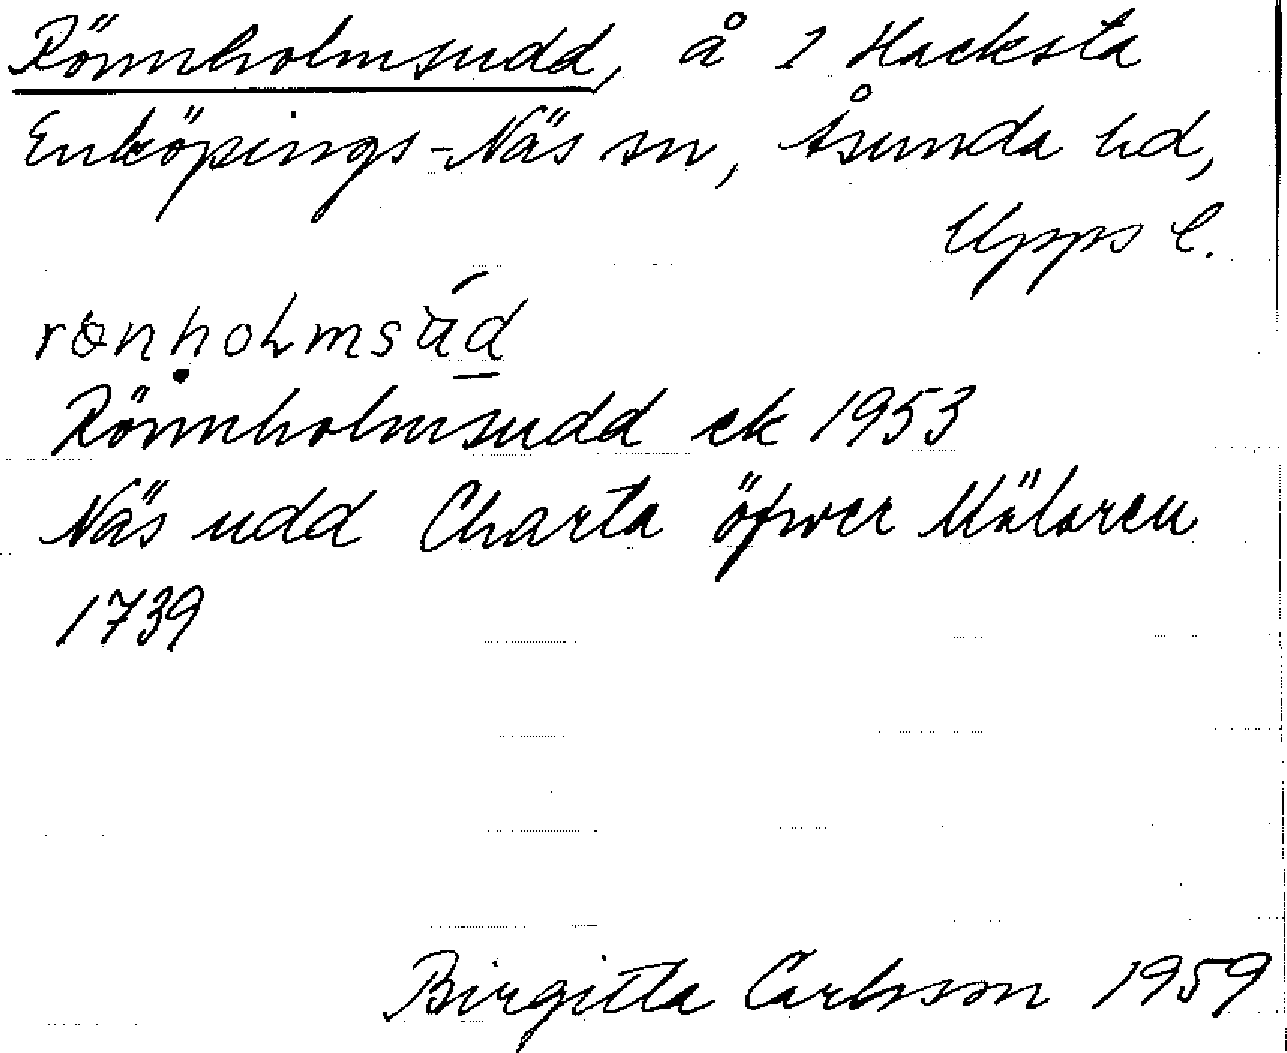 Rönnholmsudd, å 1 Hacksta
Enköpings-Näs sn, Åsunda hd,
Upps l.
Rönnholmsudd ek 1953
Näs udd Charta öfwer Mälaren
1739
Birgitta Carlsson 1959